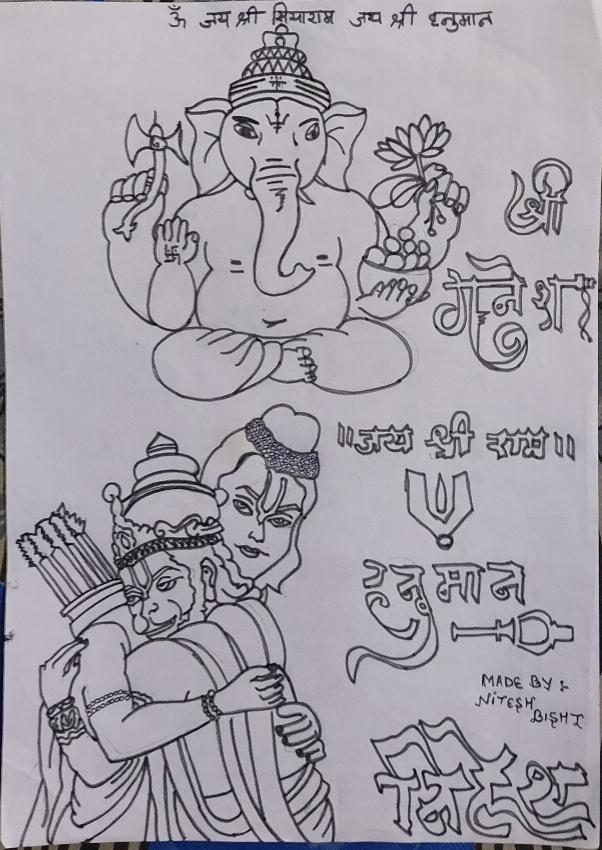 ॐ जय श्री सियाराम जय श्री हनुमान
श्री
गनेशाय
"जय श्री राम"
हनुमान
MADE BY :
NITESH
BISHT
नितेश